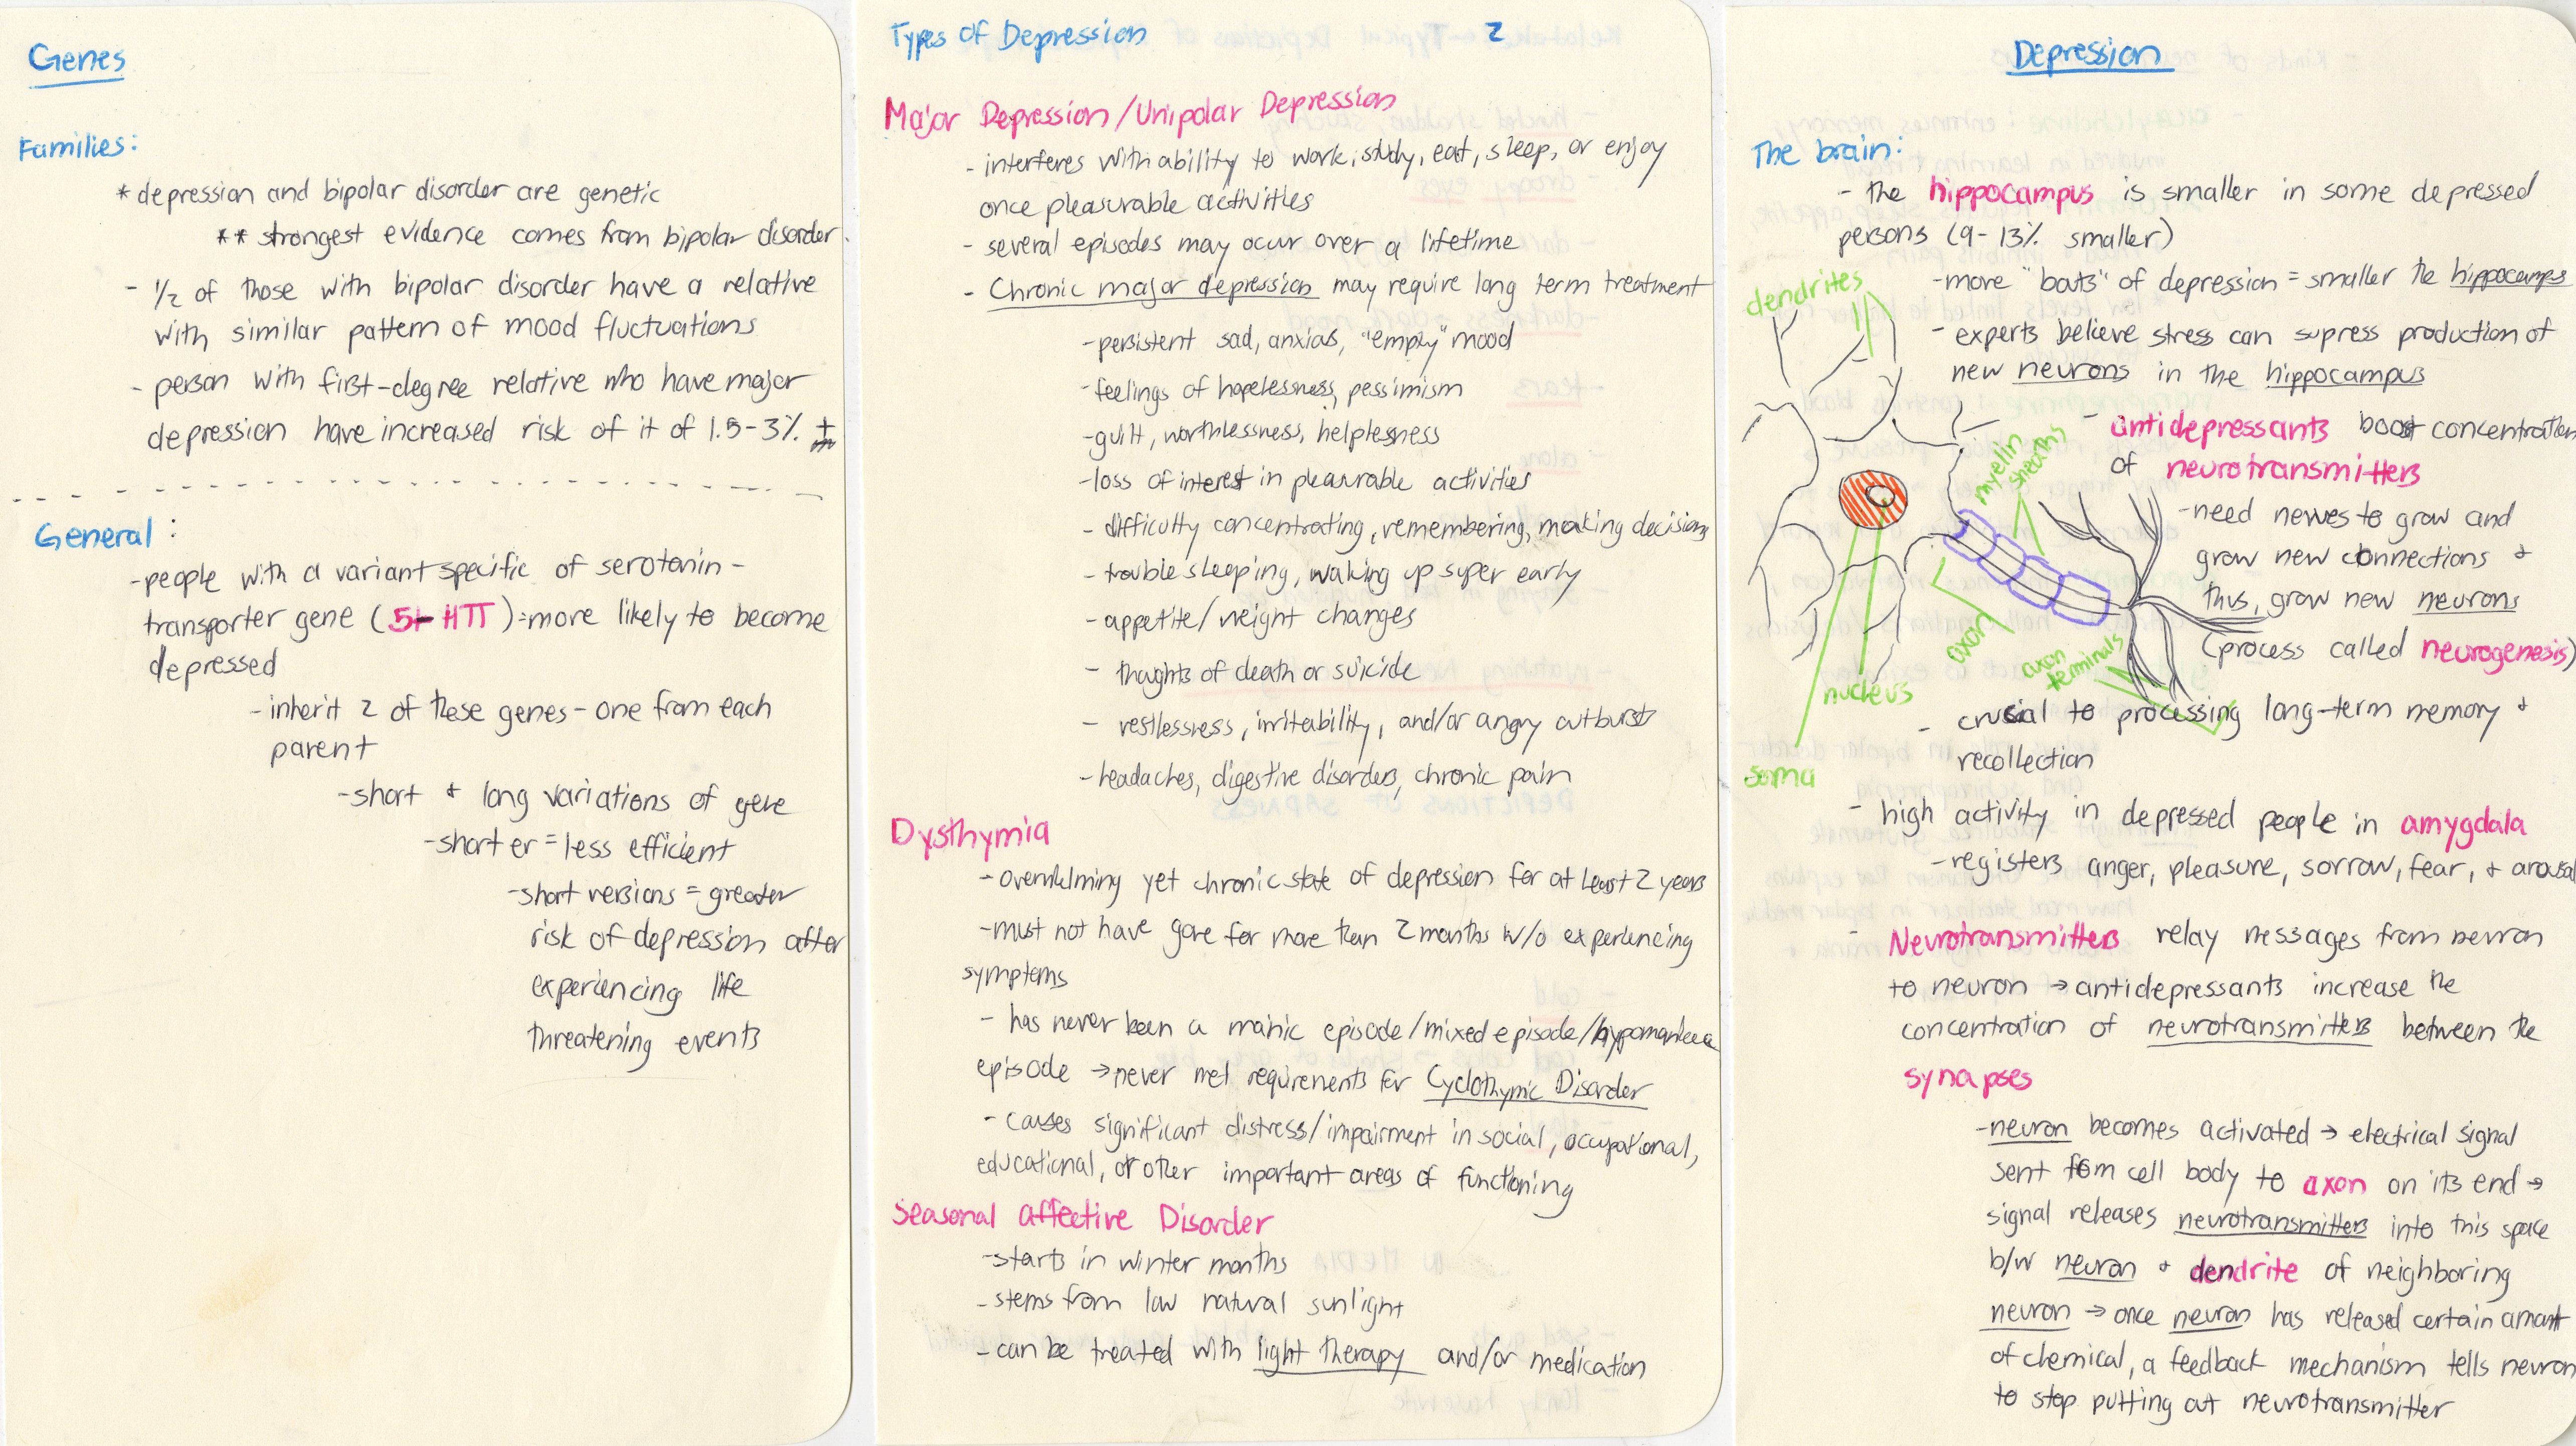 Genes
Families:
* depression and bipolar disorder are genetic
** strongest evidence comes from bipolar disorder.
- 1/2 of those with bipolar disorder have a relative
with similar pattern of mood fluctuations
- person with first-degree relative who have major
depression have increased risk of it of 1.5-3%
General:
- people with a variant specific of serotonin-
transporter gene (5-HTT)=more likely to become
depressed
- inherit 2 of these genes - one from each
parent
- short + long variations of gene
- shorter = less efficient
- short versions = greater
risk of depression after
experiencing life
threatening events
Types of Depression 2
Major Depression/Unipolar Depression
- interferes with ability to work, study, eat, sleep, or enjoy
once pleasurable activities
- several episodes may occur over a lifetime
- Chronic major depression may require long term treatment
- persistent sad, anxias, "empty" mood
- feelings of hopelessness, pessimism
- guilt, worthlessness, helplesness
- loss of interest in pleasurable activities
- difficulty concentrating, remembering, making decisions
- trouble sleeping, waking up super early
- appetite/weight changes
- thoughts of death or suicide
- restlessness, irritability, and/or angry outbursts
- headaches, digestive disorders, chronic pain
Dysthymia
- overwhelming yet chronic state of depression for at least 2 years
- must not have gone for more than 2 months w/o experiencing
symptoms
- has never been a manic episode/mixed episode/
episode → never met requirements for Cyclothymic Disorder
- causes significant distress/impairment in social, occupational,
educational, or other important areas of functioning
Seasonal Affective Disorder
- starts in winter months
- stems from low natural sunlight
- can be treated with light therapy and/or medication
Depression
The brain:
- the hippocampus is smaller in some depressed
persons (9-13% smaller)
- more "bouts" of depression = smaller the hippocamps
- experts believe stress can supress production of
new neurons in the hippocampus
- antidepressants boost concentration
of neurotransmitters
- need nerves to grow and
grow new connections +
thus, grow new neurons
(process called neurogenesis)
- crucial to processing long-term memory +
recollection
dendrites
myelin
sheaths
axon
axon
terminals
nucleus
soma
- high activity in depressed people in amygdala
- registers anger, pleasure, sorrow, fear, + arousal
- Neurotransmitters relay messages from neuron
to neuron → antidepressants increase the
concentration of neurotransmitters between the
synapses
- neuron becomes activated → electrical signal
sent from cell body to axon on its end →
signal releases neurotransmitters into this space
b/w neuron + dendrite of neighboring
neuron → once neuron has released certain amount
of chemical, a feedback mechanism tells neuron
to stop putting out neurotransmitter